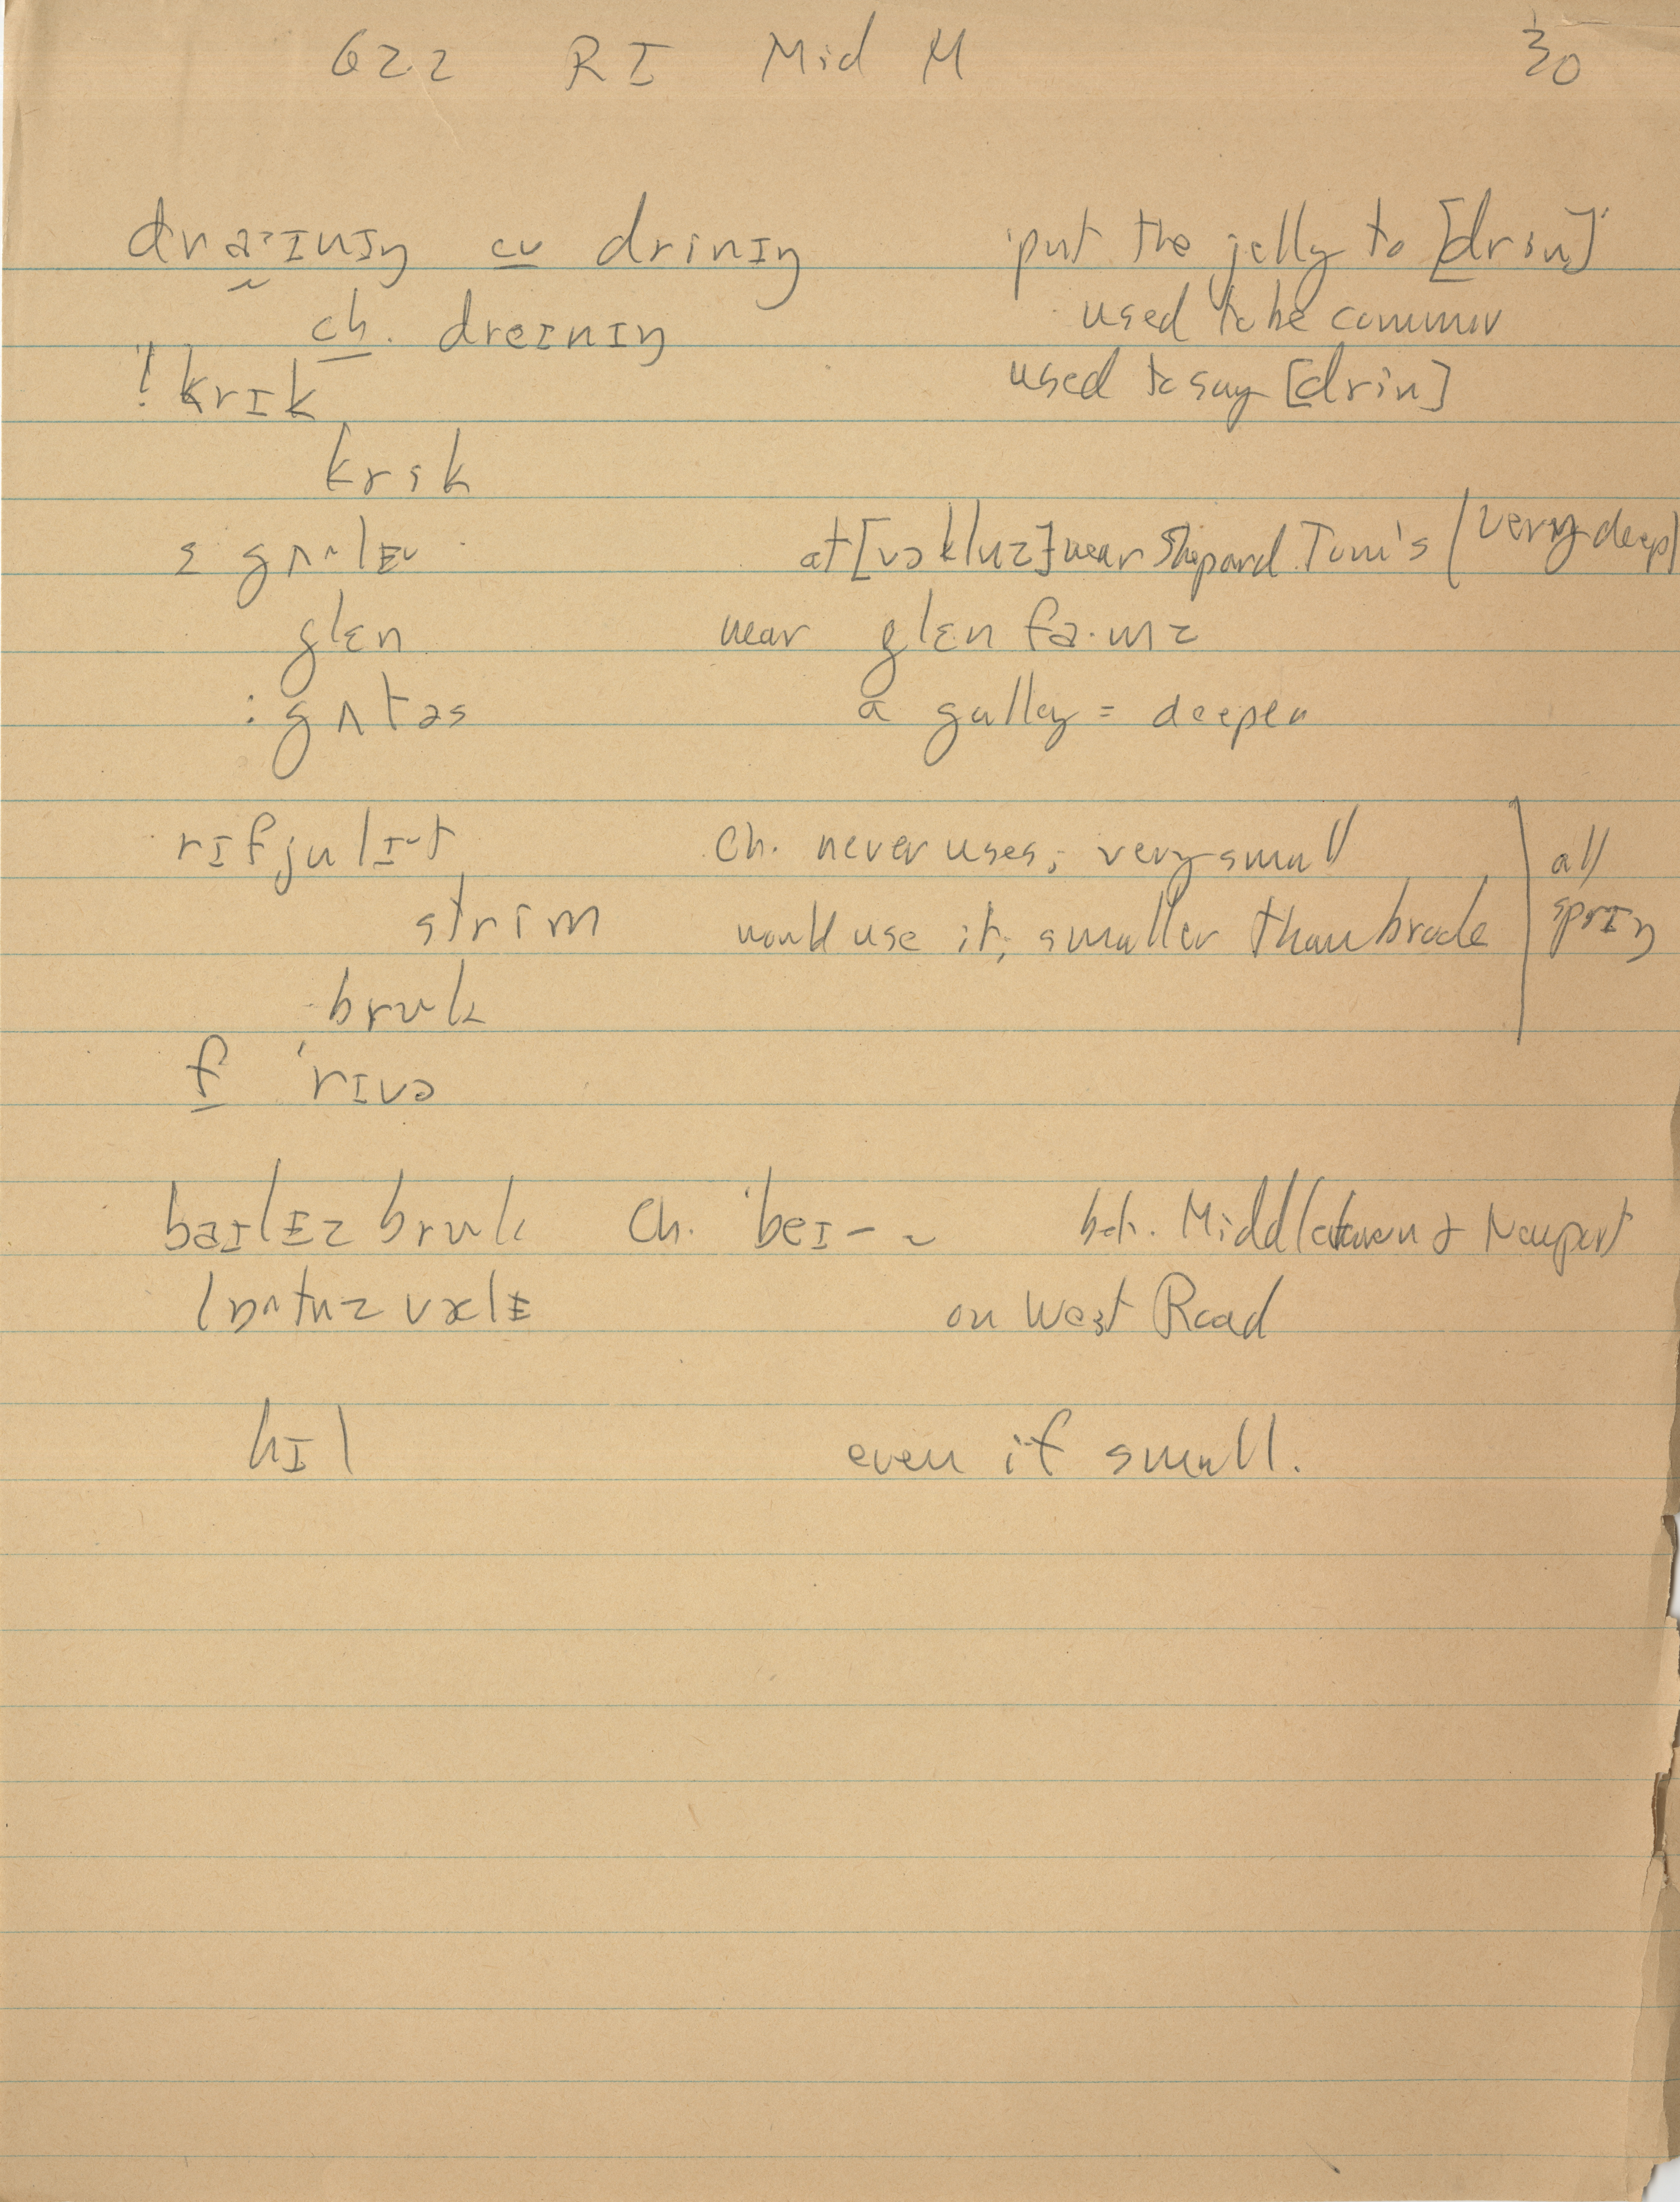 622 RI Mid M 30
draˑɪnɪŋ cv driniŋ put the jelly to [drin]
ch. dreɪnɪŋ used to be common
! krɪk used to say [drin]
krik
s gʌ^lɪ at [vɔkluz] near Shepard Tom's (very deep)
glɛn near glɛn fa·mz
: gʌtəs a gulley = deeper
rɪfjulɪ^t Ch. never uses; very small all
strim would use it; smaller than brook sprɪŋ
bruk
f 'rɪvə
baɪlɪz bruk Ch. 'beɪ- ~ bet. Middletown & Newport
lɒ^tnz vælɪ on West Road
hɪl even if small.